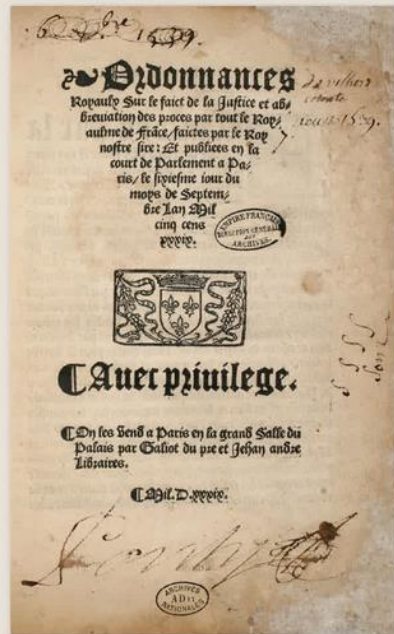 6 bre 1539.
Ordonnances
Royaulx Sur le faict de la Justice et ab⸗
breviation des proces par tout le Roy⸗
aulme de Frāce/ faictes par le Roy
nostre sire: Et publiees en la
court de Parlement a Pa⸗
ris/ le sixiesme iour du
moys de Septem⸗
bre Lan Mil
cinq cens
xxxix.
de villiers
1539.
EMPIRE FRANÇAIS
DIRECTION GENERALE
DES
ARCHIVES
¶ Avec privilege.
¶ On les vend a Paris en la grand Salle du
Palais par Galiot du pre et Jehan andre
Libraires.
¶ Mil. D. xxxix.
ARCHIVES
AD II
NATIONALES